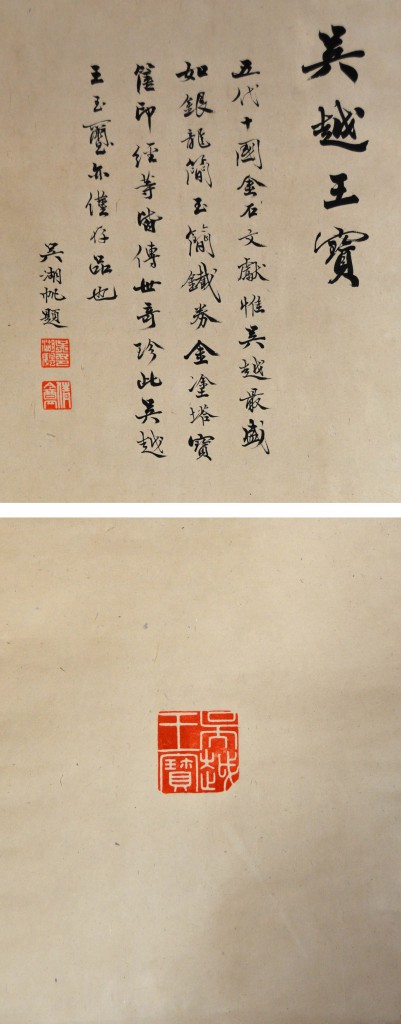 吳越王寶
五代十國金石文獻惟吳越最盛
如銀龍簡玉簡鐵券金塗塔寶
篋印經等皆傳世奇珍此吳越
王玉璽亦僅存品也
吳湖帆題
吳越王寶